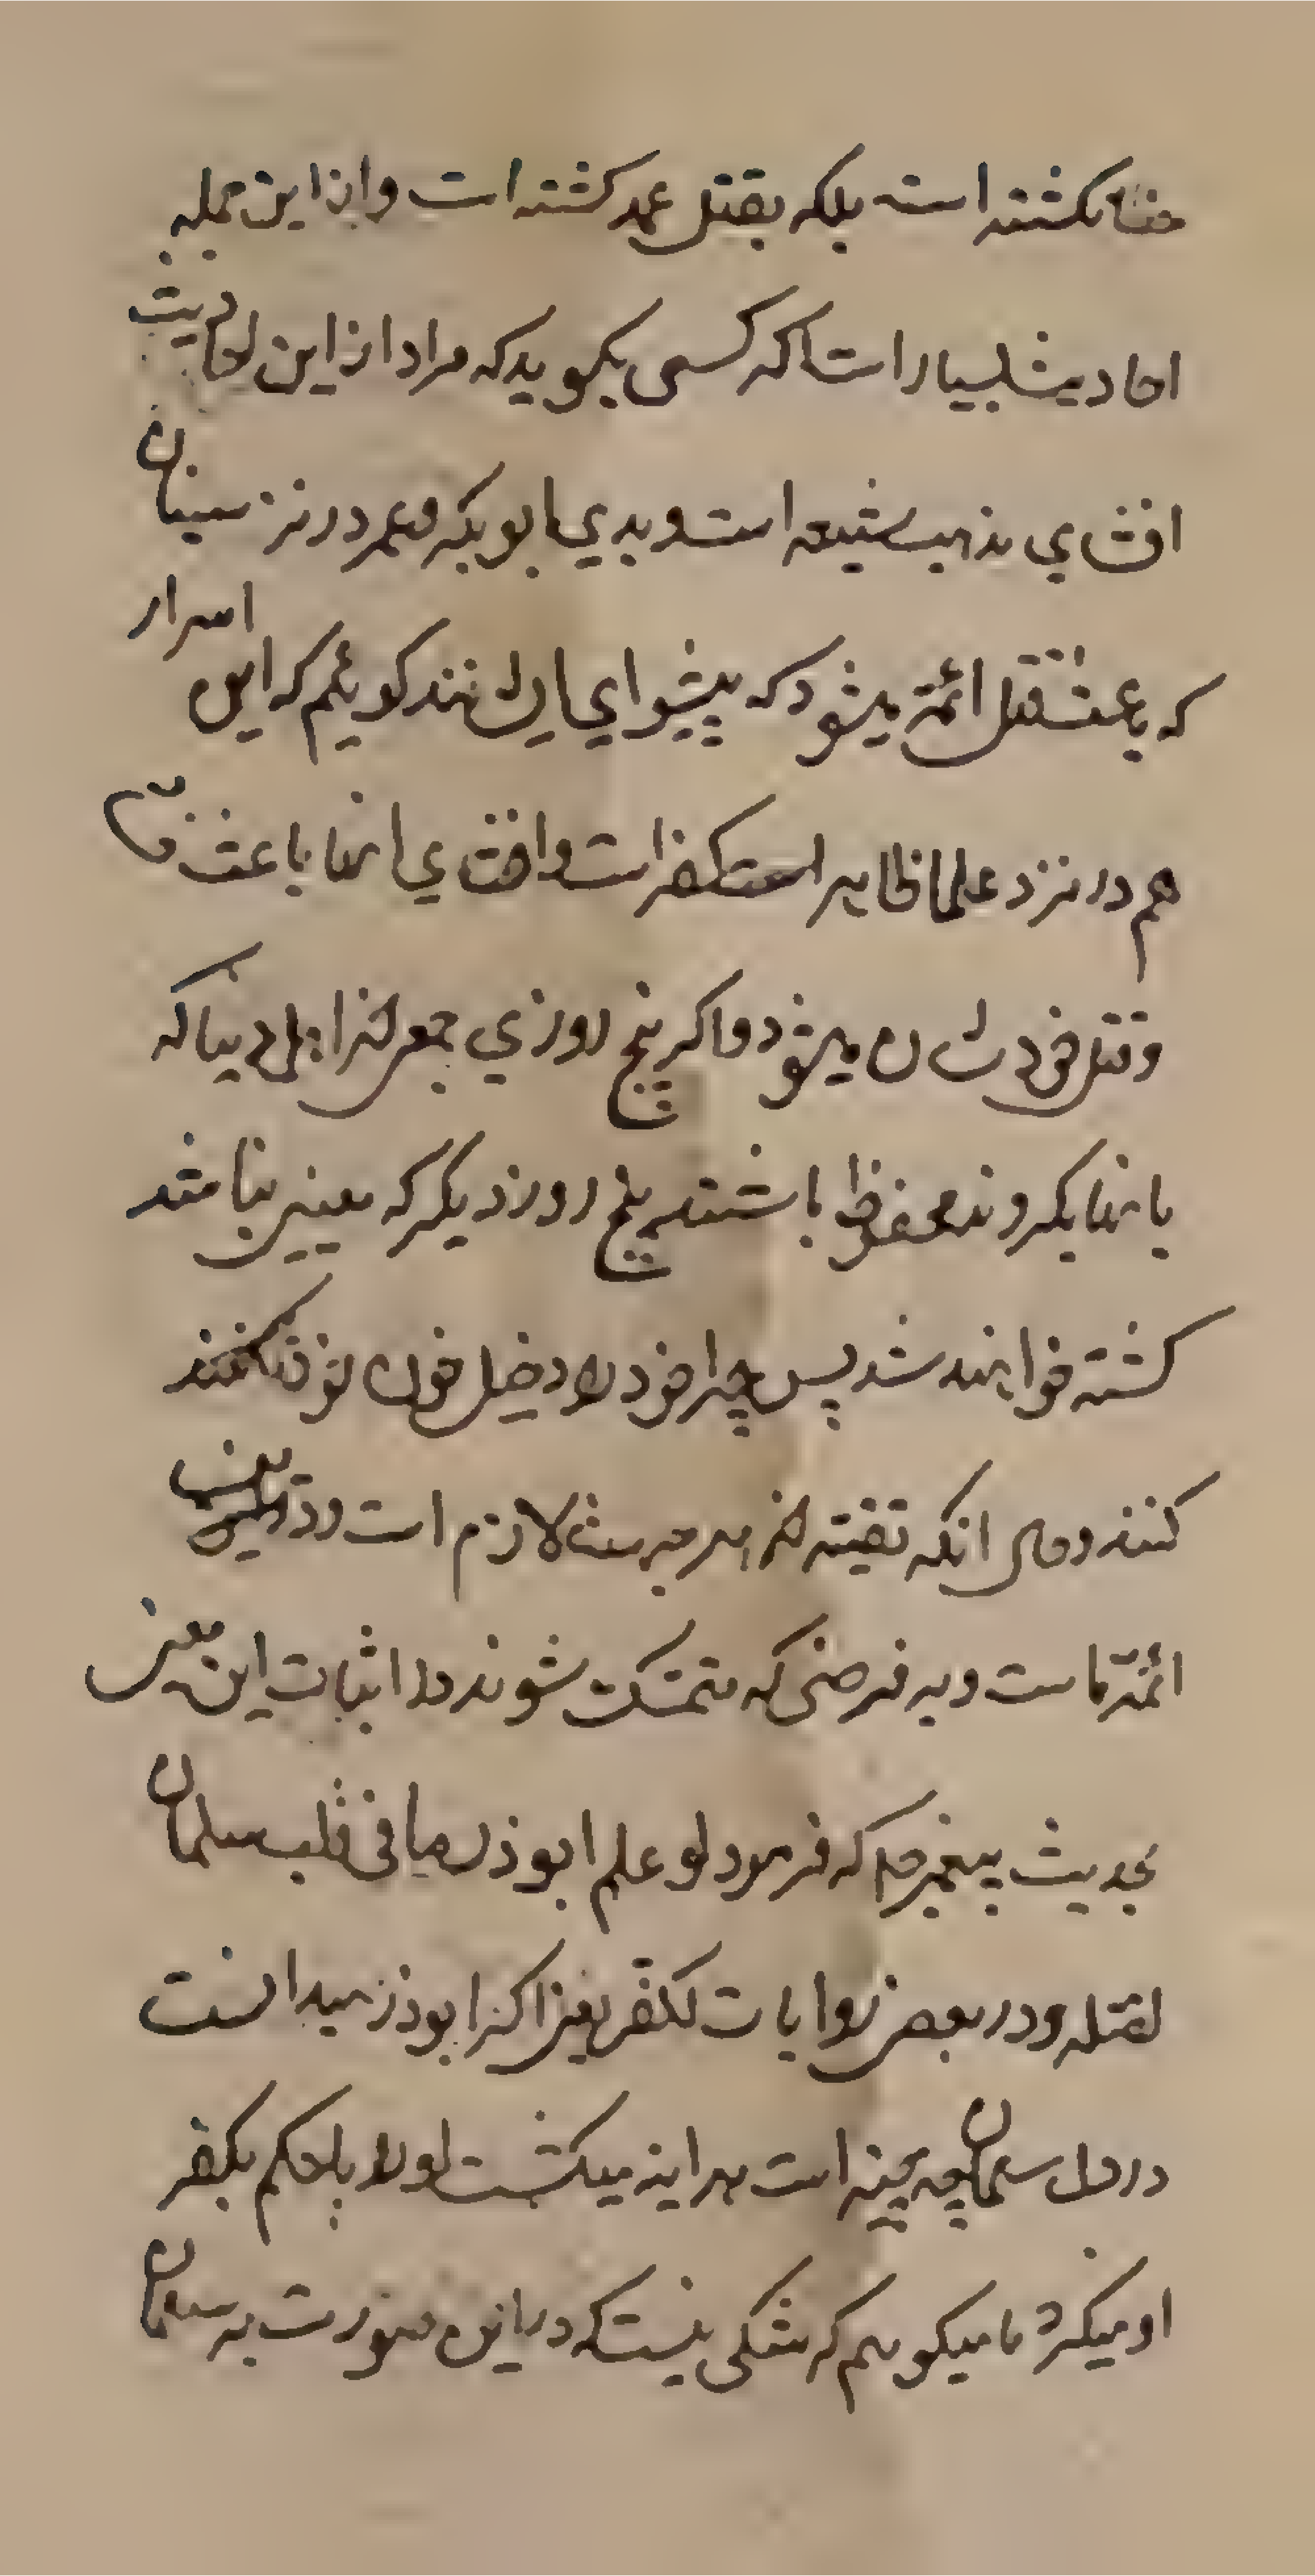 خطا نکشته است بلکه بقتل عمد کشته است و از این جمله
احادیث بسیار است اکر کسی بکوید که مراد از این احادیث
افشای مذهب شیعه است و بدی ابوبکر و عمر در نزد سنیان
که باعث قتل ائمة میشود که پیشوای ایشانند کوئیم که این اسرار
هم در نزد علما ظاهر است کفر است و افشای انها باعث
و قتل خود شان میشود و اکر پنج روزی جمعی از اهل دنیا که
بانها بکروند محفوظ باشند پنج روز دیکر که معین نباشد
کشته خواهند شد پس چرا خود را دخیل خون خود
کنند و حال انکه تقیه از هر جهت لازم است و دین
ائمة ماست و به فرضی که متمسک شوند در اثبات این معنی
بحدیث پیغمبر صلم که فرمود لو علم ابوذر ما فی قلب سلمان
لقتله و در بعض روایات لکفر یعنی اکر ابوذر میدانست
در دل سلمان چه چیز است هر اینه میکشت او را یا حکم بکفر
او میکرد ما میکویم که شکی نیست که در این صورت به سلمان